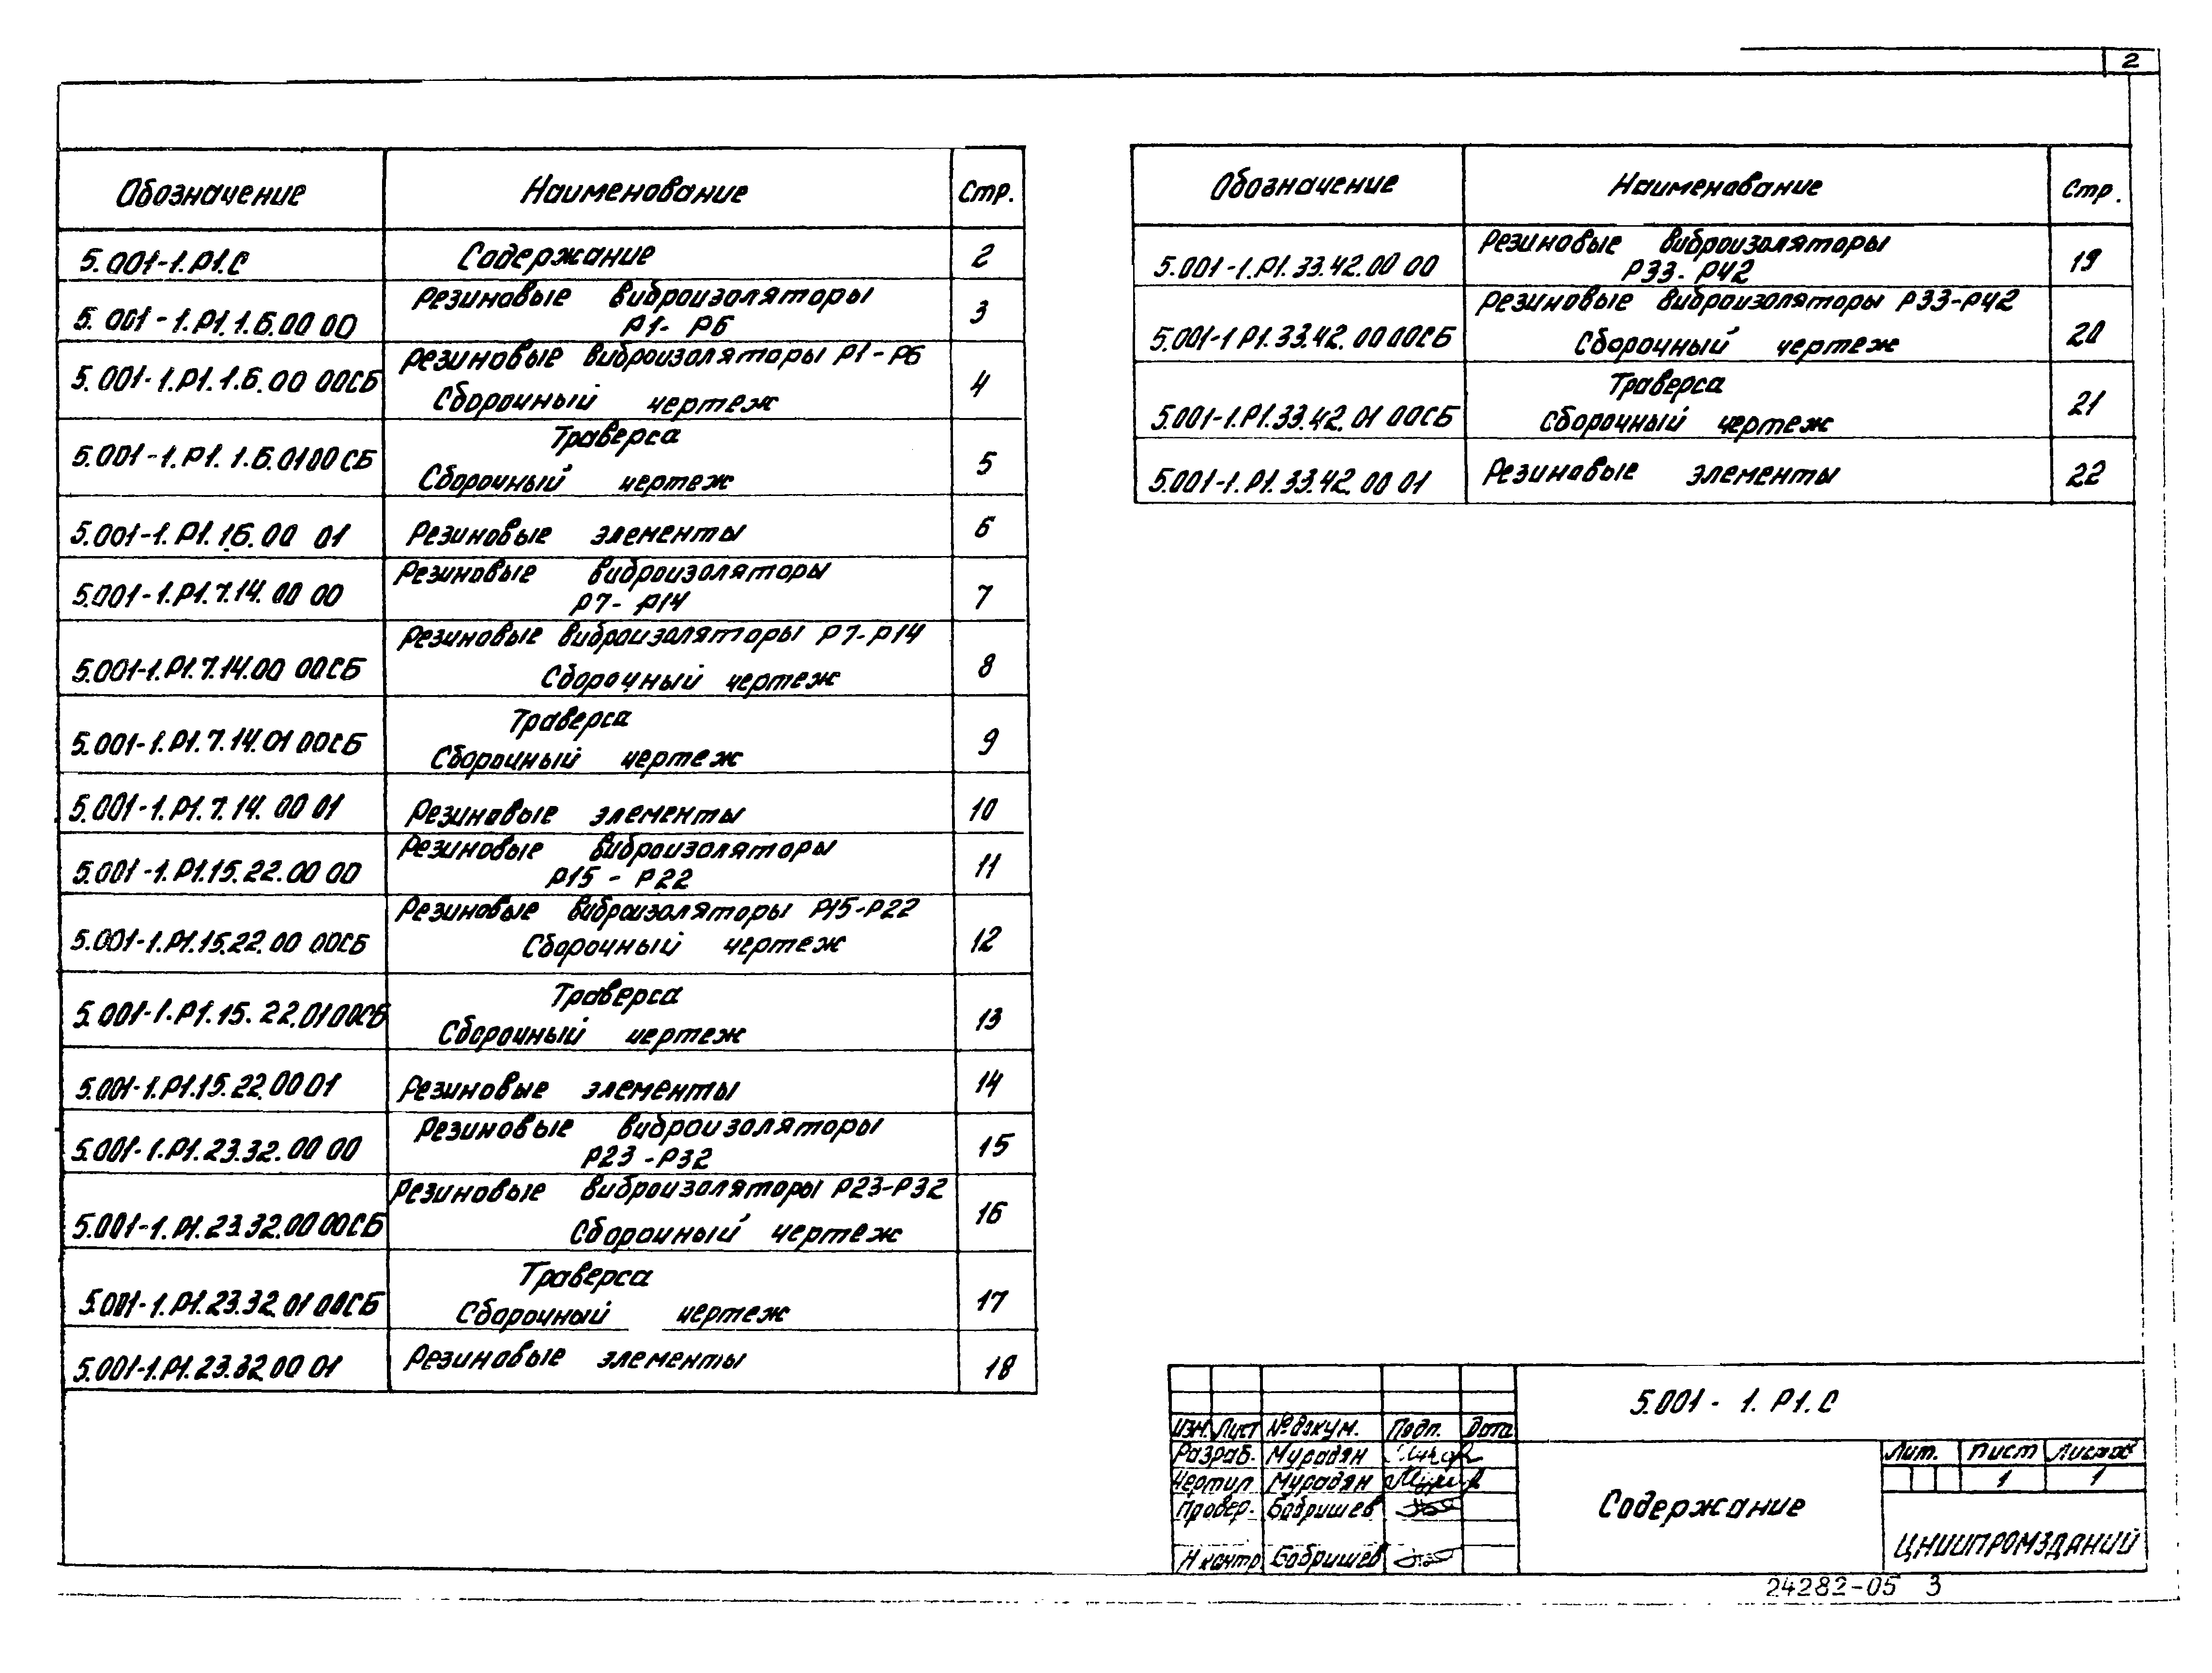 2
Обозначение Наименование Стр.
5.001-1.Р1.С Содержание 2
5.001-1.Р1.1.6.00 00 Резиновые виброизоляторы Р1-Р6 3
5.001-1.Р1.1.6.00 00СБ Резиновые виброизоляторы Р1-Р6
Сборочный чертеж 4
5.001-1.Р1.1.6.01 00СБ Траверса
Сборочный чертеж 5
5.001-1.Р1.1.6.00 01 Резиновые элементы 6
5.001-1.Р1.7.14.00 00 Резиновые виброизоляторы
Р7-Р14 7
5.001-1.Р1.7.14.00 00СБ Резиновые виброизоляторы Р7-Р14
Сборочный чертеж 8
5.001-1.Р1.7.14.01 00СБ Траверса
Сборочный чертеж 9
5.001-1.Р1.7.14.00 01 Резиновые элементы 10
5.001-1.Р1.15.22.00 00 Резиновые виброизоляторы
Р15-Р22 11
5.001-1.Р1.15.22.00 00СБ Резиновые виброизоляторы Р15-Р22
Сборочный чертеж 12
5.001-1.Р1.15.22.01 00СБ Траверса
Сборочный чертеж 13
5.001-1.Р1.15.22.00 01 Резиновые элементы 14
5.001-1.Р1.23.32.00 00 Резиновые виброизоляторы
Р23-Р32 15
5.001-1.Р1.23.32.00 00СБ Резиновые виброизоляторы Р23-Р32
Сборочный чертеж 16
5.001-1.Р1.23.32.01 00СБ Траверса
Сборочный чертеж 17
5.001-1.Р1.23.32.00 01 Резиновые элементы 18
Обозначение Наименование Стр.
5.001-1.Р1.33.42.00 00 Резиновые виброизоляторы
Р33-Р42 19
5.001-1.Р1.33.42.00 00СБ Резиновые виброизоляторы Р33-Р42
Сборочный чертеж 20
5.001-1.Р1.33.42.01 00СБ Траверса
Сборочный чертеж 21
5.001-1.Р1.33.42.00 01 Резиновые элементы 22
5.001-1.Р1.С
Изм. Лист № докум. Подп. Дата
Разраб. Мурадян
Чертил Мурадян
Провер. Бобришев
Н контр Бобришев
Содержание
Лит. Лист Листов
1 1
ЦНИИПРОМЗДАНИЙ
24282-05 3